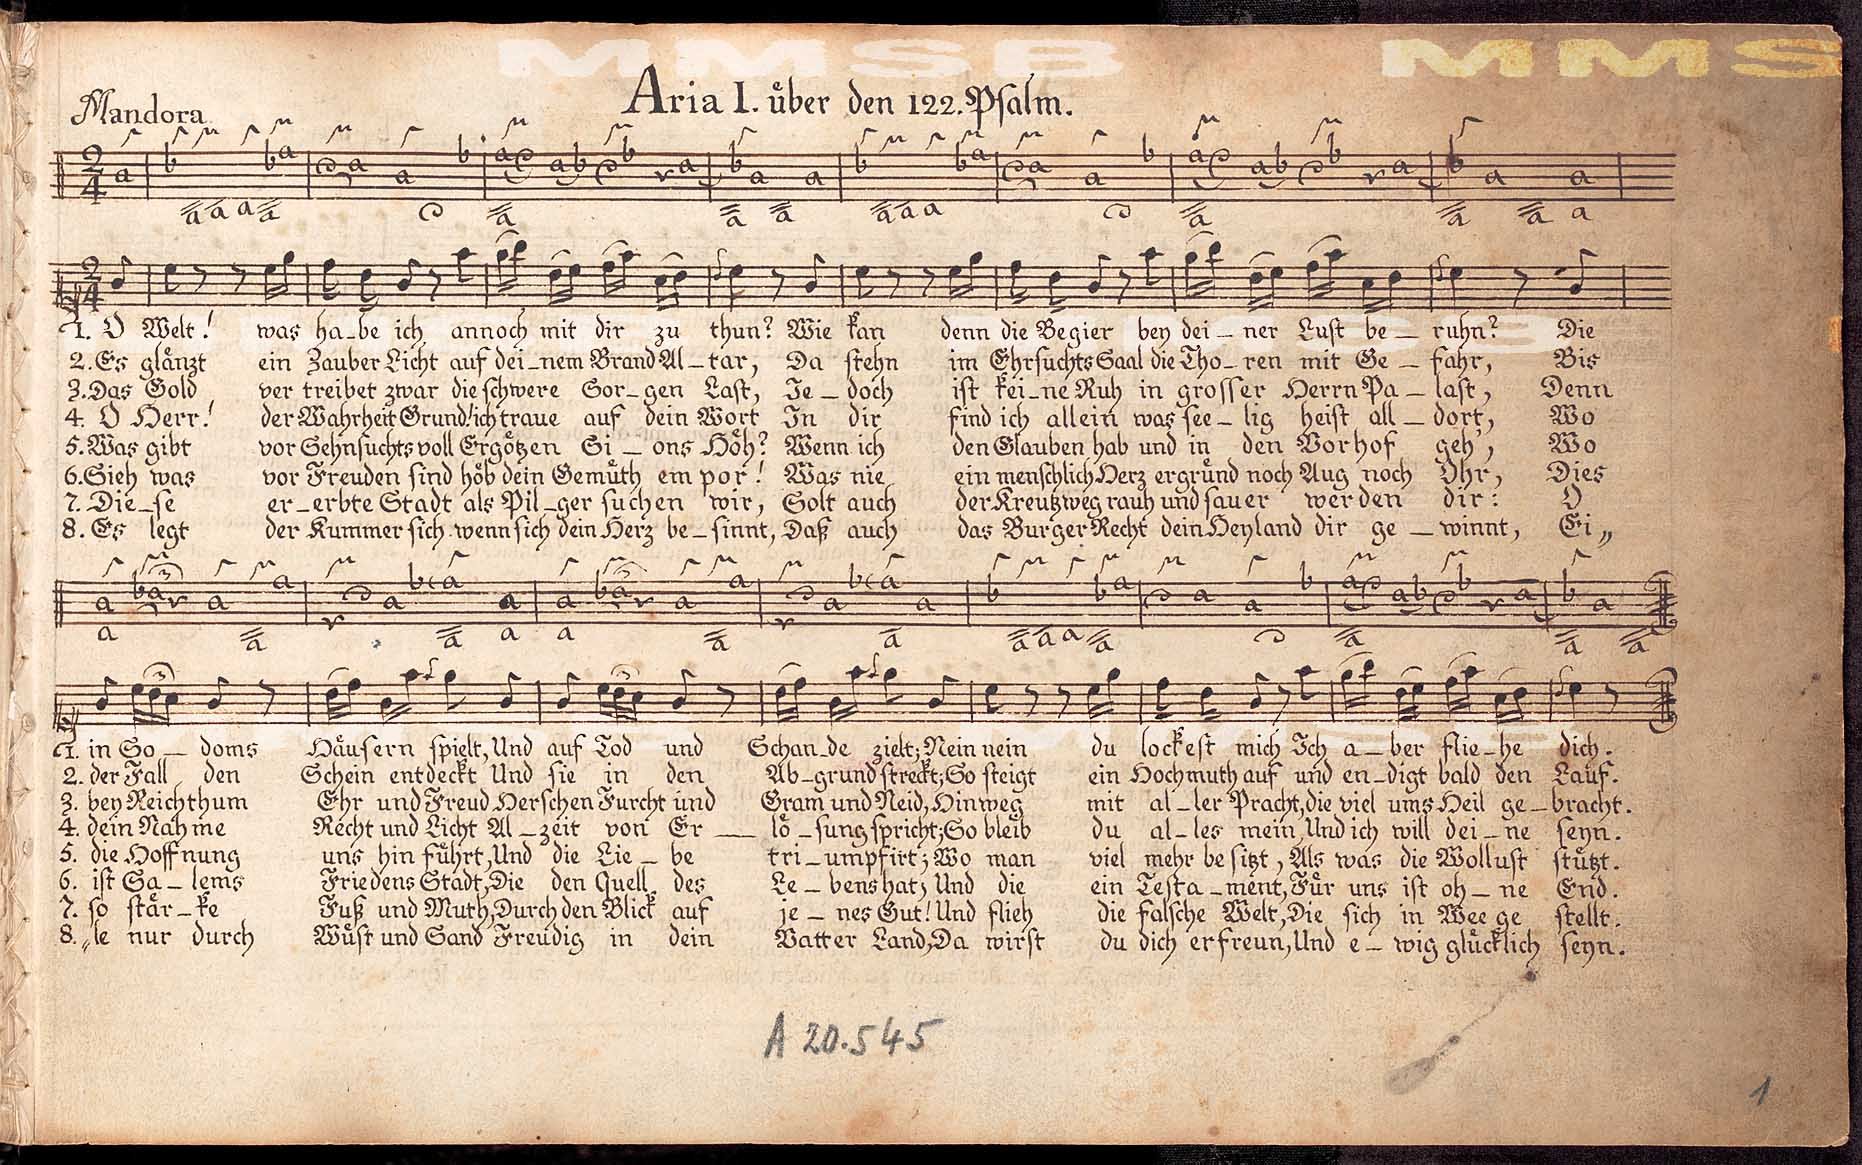 MMSB MMS
Aria I. über den 122. Psalm.
Mandora
1. O Welt! was ha-be ich annoch mit dir zu thun? Wie kan denn die Begier bey dei-ner Lust be-ruhn? Die
2. Es glänzt ein Zauber Licht auf dei-nem Brand Al-tar, Da stehn im Ehrsuchts Saal die Tho-ren mit Ge-fahr, Bis
3. Das Gold ver treibet zwar die schwere Sor-gen Last, Je-doch ist kei-ne Ruh in grosser Herrn Pa-last, Denn
4. O Herr! der Wahrheit Grund! ich traue auf dein Wort In dir find ich allein was see-lig heist all-dort, Wo
5. Was gibt vor Sehnsuchts voll Ergötzen Si-ons Höh? Wenn ich den Glauben hab und in den Vorhof geh, Wo
6. Sieh was vor Freuden sind höb dein Gemüth em por! Was nie ein menschlich Herz ergründ noch Aug noch Ohr, Dies
7. Die-se er-erbte Stadt als Pil-ger suchen wir, Solt auch der Kreutzweg rauh und sauer werden dir: O
8. Es legt der Kummer sich wenn sich dein Herz be-sinnt, Daß auch das Burger Recht dein Heyland dir ge-winnt, Ei„
1. in So-doms Häusern spielt, Und auf Tod und Schan-de zielt; Nein nein du lockest mich Ich a-ber flie-he dich.
2. der Fall den Schein entdeckt Und sie in den Ab-grund streckt; So steigt ein Hochmuth auf und en-digt bald den Lauf.
3. bey Reichthum Ehr und Freud Herschen Furcht und Gram und Neid, Hinweg mit al-ler Pracht, die viel ums Heil ge-bracht.
4. dein Nahme Recht und Licht Al-zeit von Er-lö-sung spricht; So bleib du al-les mein, Und ich will dei-ne seyn.
5. die Hoffnung uns hin führt, Und die Lie-be tri-umpfirt; Wo man viel mehr besitzt, Als was die Wollust stützt.
6. ist Sa-lems Friedens Stadt, Die den Quell des Le-bens hat; Und die ein Testa-ment, Für uns ist oh-ne End.
7. so stär-ke Fuß und Muth, Durch den Blick auf je-nes Gut! Und flieh die falsche Welt, Die sich in Weege stellt.
8. „le nur durch Wüst und Sand Freudig in dein Vatter Land, Da wirst du dich erfreun, Und e-wig glücklich seyn.
A 20.545
1